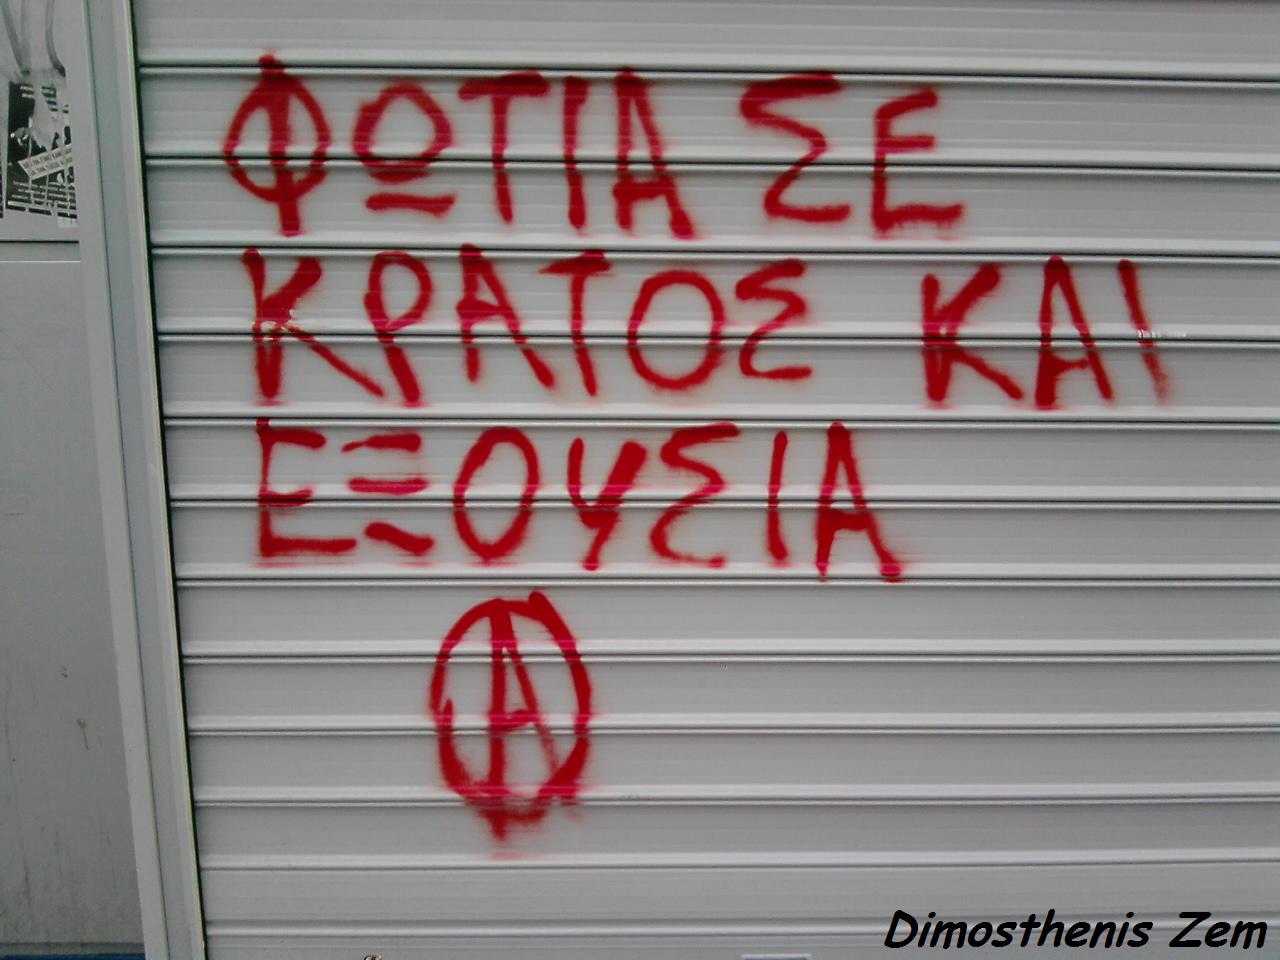 ΦΩΤΙΑ ΣΕ
ΚΡΑΤΟΣ ΚΑΙ
ΕΞΟΥΣΙΑ
Α
Dimosthenis Zem